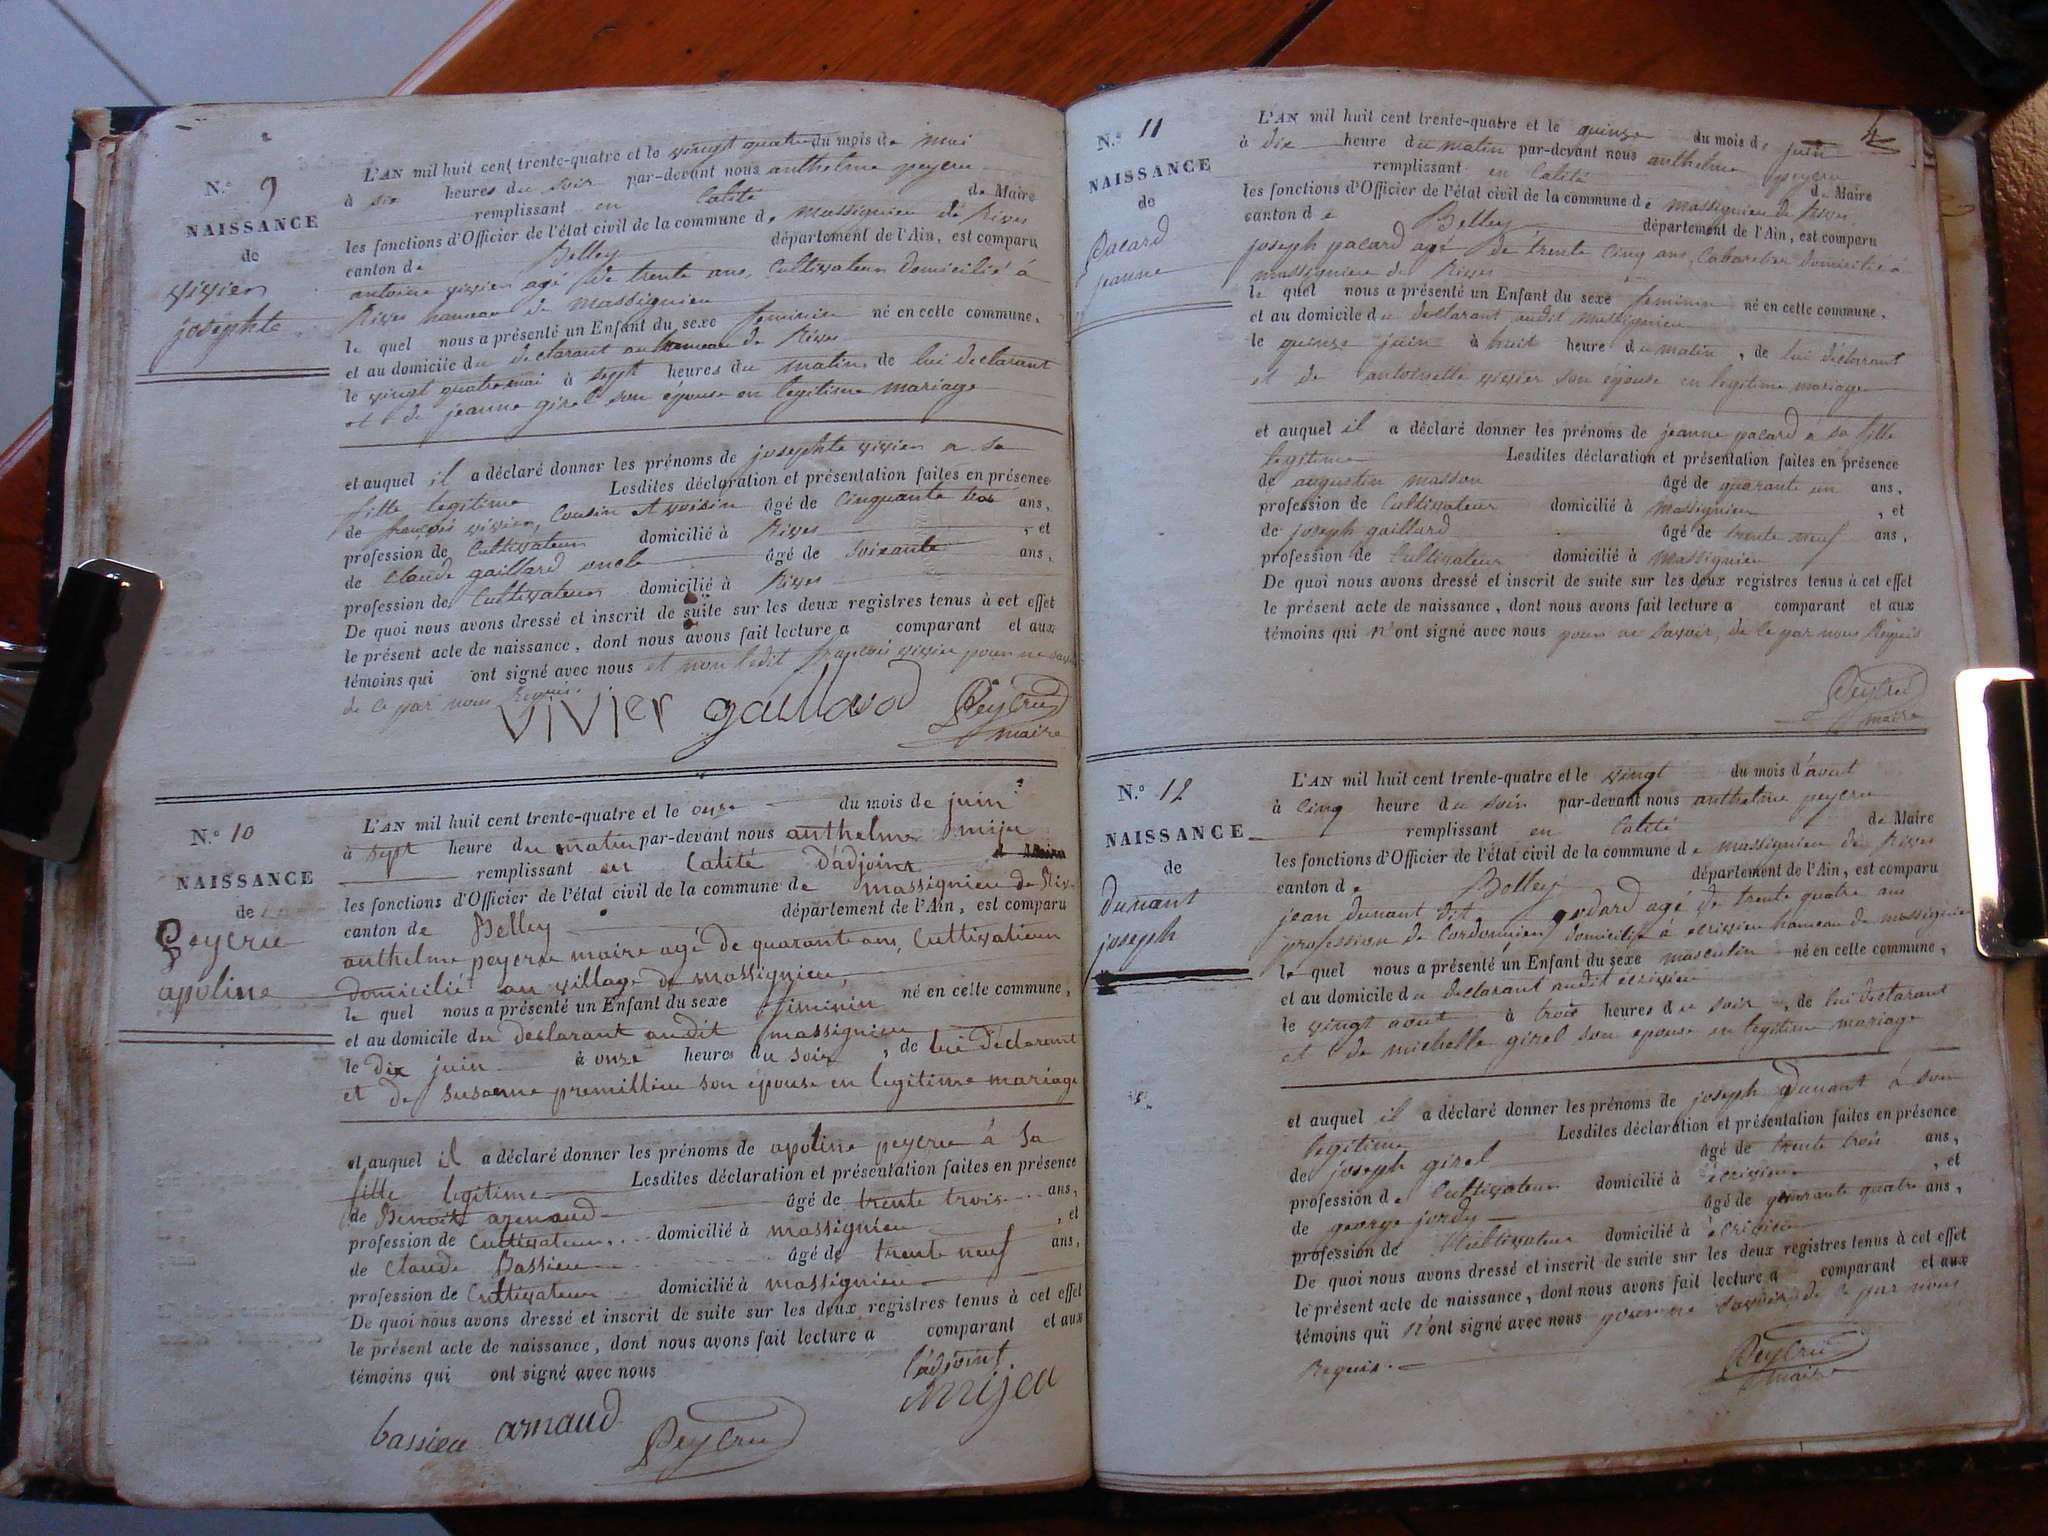 N.° 9
NAISSANCE
de
vivier
josephte
L'AN mil huit cent trente-quatre et le vingt quatre du mois de mai
à six heures du soir par-devant nous anthelme peycru
remplissant en calité de Maire
les fonctions d'Officier de l'état civil de la commune de massignieu de Rives
canton de Belley département de l'Ain, est comparu
antoine vivier agé de trente ans, Cultivateur domicilié à
Rives hameau de massignieu
le quel nous a présenté un Enfant du sexe feminin né en cette commune,
et au domicile du declarant au hameau de Rives
le vingt quatre mai à sept heures du matin de lui declarant
et de jeanne girel son épouse en legitime mariage
et auquel il a déclaré donner les prénoms de josephte vivier a sa
fille legitime Lesdites déclaration et présentation faites en présence
de françois vivier, Cousin et voisin âgé de Cinquante trois ans,
profession de Cultivateur domicilié à Rives, et
de Claude gaillard oncle âgé de soixante ans,
profession de Cultivateur domicilié à Rives
De quoi nous avons dressé et inscrit de suite sur les deux registres tenus à cet effet
le présent acte de naissance, dont nous avons fait lecture a comparant et aux
témoins qui ont signé avec nous et non ledit françois vivier pour ne savoir
de ce par nous Requis.
VIVIER gaillard Peycru
maire
N.° 10
NAISSANCE
de
Peycru
apoline
L'AN mil huit cent trente-quatre et le onze du mois de juin
à sept heure du matin par-devant nous anthelme mijea
remplissant en Calité D'adjoint de Maire
les fonctions d'Officier de l'état civil de la commune de massignieu de Riv.
canton de Belley département de l'Ain, est comparu
anthelme peycru maire agé de quarante ans, Cultivateur
domicilié au village de massignieu,
le quel nous a présenté un Enfant du sexe feminin né en cette commune,
et au domicile du declarant audit massignieu
le dix juin à onze heures du soir, de lui déclarant
et de susanne premillieu son épouse en legitime mariage
et auquel il a déclaré donner les prénoms de apoline peycru à sa
fille legitime Lesdites déclaration et présentation faites en présence
de Benoit arnaud âgé de trente trois ans,
profession de Cultivateur domicilié à massignieu, et
de Claude Bassieu âgé de trente neuf ans,
profession de Cultivateur domicilié à massignieu
De quoi nous avons dressé et inscrit de suite sur les deux registres tenus à cet effet
le présent acte de naissance, dont nous avons fait lecture a comparant et aux
témoins qui ont signé avec nous l'adjoint
bassieu arnaud Peycru mijea
N.° 11
NAISSANCE
de
Pacard
jeanne
4
L'AN mil huit cent trente-quatre et le quinze du mois de juin
à dix heure du matin par-devant nous anthelme peycru
remplissant en Calité de Maire
les fonctions d'Officier de l'état civil de la commune de massignieu de Rives
canton de Belley département de l'Ain, est comparu
joseph pacard agé de trente cinq ans, Cabaretier domicilié à
massignieu de Rives
le quel nous a présenté un Enfant du sexe feminin né en cette commune,
et au domicile du declarant audit massignieu
le quinze juin à huit heure du matin, de lui déclarant
et de antoinette vivier son épouse en legitime mariage
et auquel il a déclaré donner les prénoms de jeanne pacard à sa fille
legitime Lesdites déclaration et présentation faites en présence
de augustin masson âgé de quarante un ans,
profession de Cultivateur domicilié à massignieu, et
de joseph gaillard âgé de trente neuf ans,
profession de Cultivateur domicilié à massignieu
De quoi nous avons dressé et inscrit de suite sur les deux registres tenus à cet effet
le présent acte de naissance, dont nous avons fait lecture a comparant et aux
témoins qui n'ont signé avec nous pour ne savoir, de ce par nous Requis
Peycru
maire
N.° 12
NAISSANCE
de
Dunant
joseph
L'AN mil huit cent trente-quatre et le vingt du mois d'aout
à Cinq heure du soir par-devant nous anthelme peycru
remplissant en Calité de Maire
les fonctions d'Officier de l'état civil de la commune de massignieu de Rives
canton de Belley département de l'Ain, est comparu
jean dunant dit agé de trente quatre ans
profession de Cordonnier domicilié à ecrivieu hameau de massignieu
le quel nous a présenté un Enfant du sexe masculin né en cette commune,
et au domicile du declarant audit ecrivieu
le vingt aout à trois heures du soir, de lui declarant
et de michelle girel son epouse en legitime mariage
et auquel il a déclaré donner les prénoms de joseph Dunant à son
legitime Lesdites déclaration et présentation faites en présence
de joseph girel âgé de trente trois ans,
profession de Cultivateur domicilié à écrivieu, et
de george jordy âgé de quarante quatre ans,
profession de Cultivateur domicilié à écrivieu
De quoi nous avons dressé et inscrit de suite sur les deux registres tenus à cet effet
le présent acte de naissance, dont nous avons fait lecture a comparant et aux
témoins qui n'ont signé avec nous pour ne savoir de ce par nous
Requis.
Peycru
maire